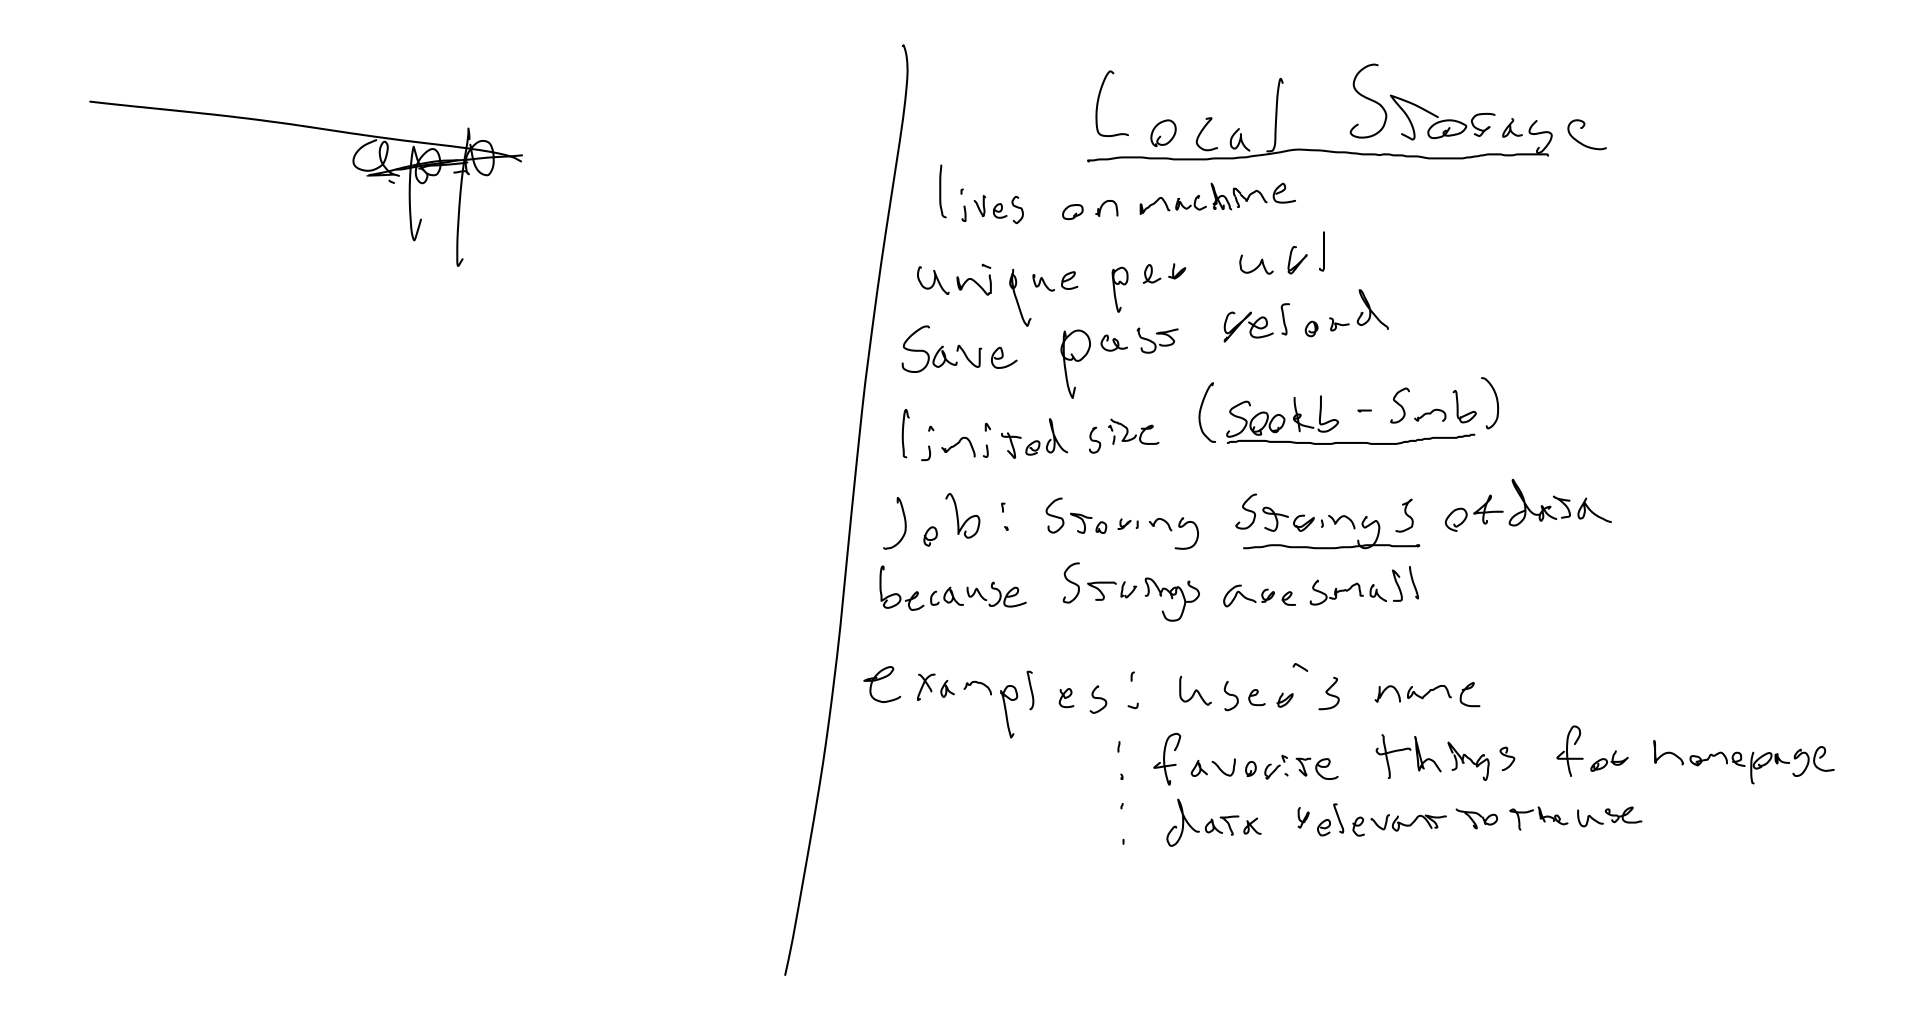 app
Local Storage
lives on machine
unique per url
Save pass reload
limited size (500kb - 5mb)
Job: Storing Strings of data
because Strings are small
examples: user's name
: favorite things for homepage
: data relevant to the use